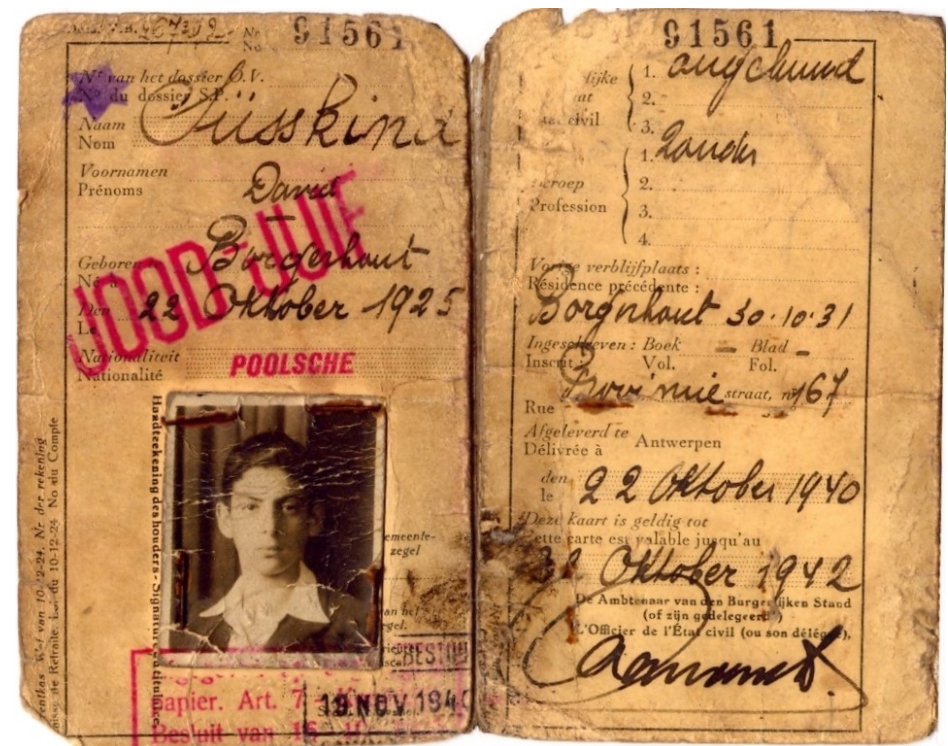 91561
Nr
No
Nr van het dossier O.V.
No du dossier S.P.
Naam
Nom
Süsskind
Voornamen
Prénoms
David
JOOD-JUIF
Geboren
Né à
Borgerhout
Den
Le
22 Oktober 1925
Nationaliteit
Nationalité
POOLSCHE
Handteekening des houders - Signature du titulaire
Wet van 10-12-24. Nr der rekening
de Retraite. Loi du 10-12-24 No du Compte
emeente-
zegel
papier. Art. 7
19 NOV 1940
Besluit van
91561
1. ongehuwd
2.
civil
3.
1. zonder
2.
Profession
3.
4.
Vorige verblijfplaats :
Résidence précédente :
Borgerhout 30.10.31
Ingeschreven : Boek — Blad —
Inscrit : Vol. Fol.
Provincie straat, nr 167
Rue
Afgeleverd te
Délivrée à
Antwerpen
den
le
22 Oktober 1940
Deze kaart is geldig tot
Cette carte est valable jusqu'au
Oktober 1942
De Ambtenaar van den Burgerlijken Stand
(of zijn gedelegeerde)
L'Officier de l'État civil (ou son délégué),